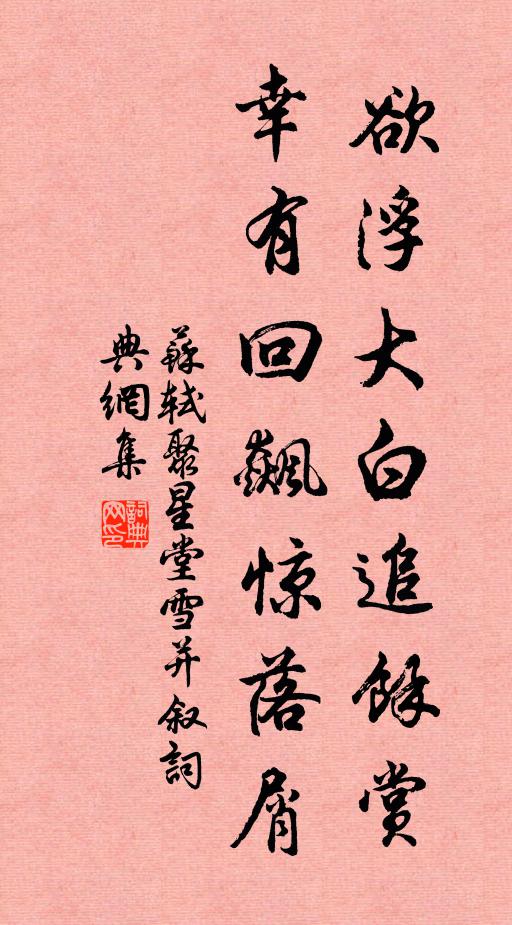 欲浮大白追餘賞
幸有回飆惊落屑
蘇軾聚星堂雪并叙詞
典網集
詞典网印